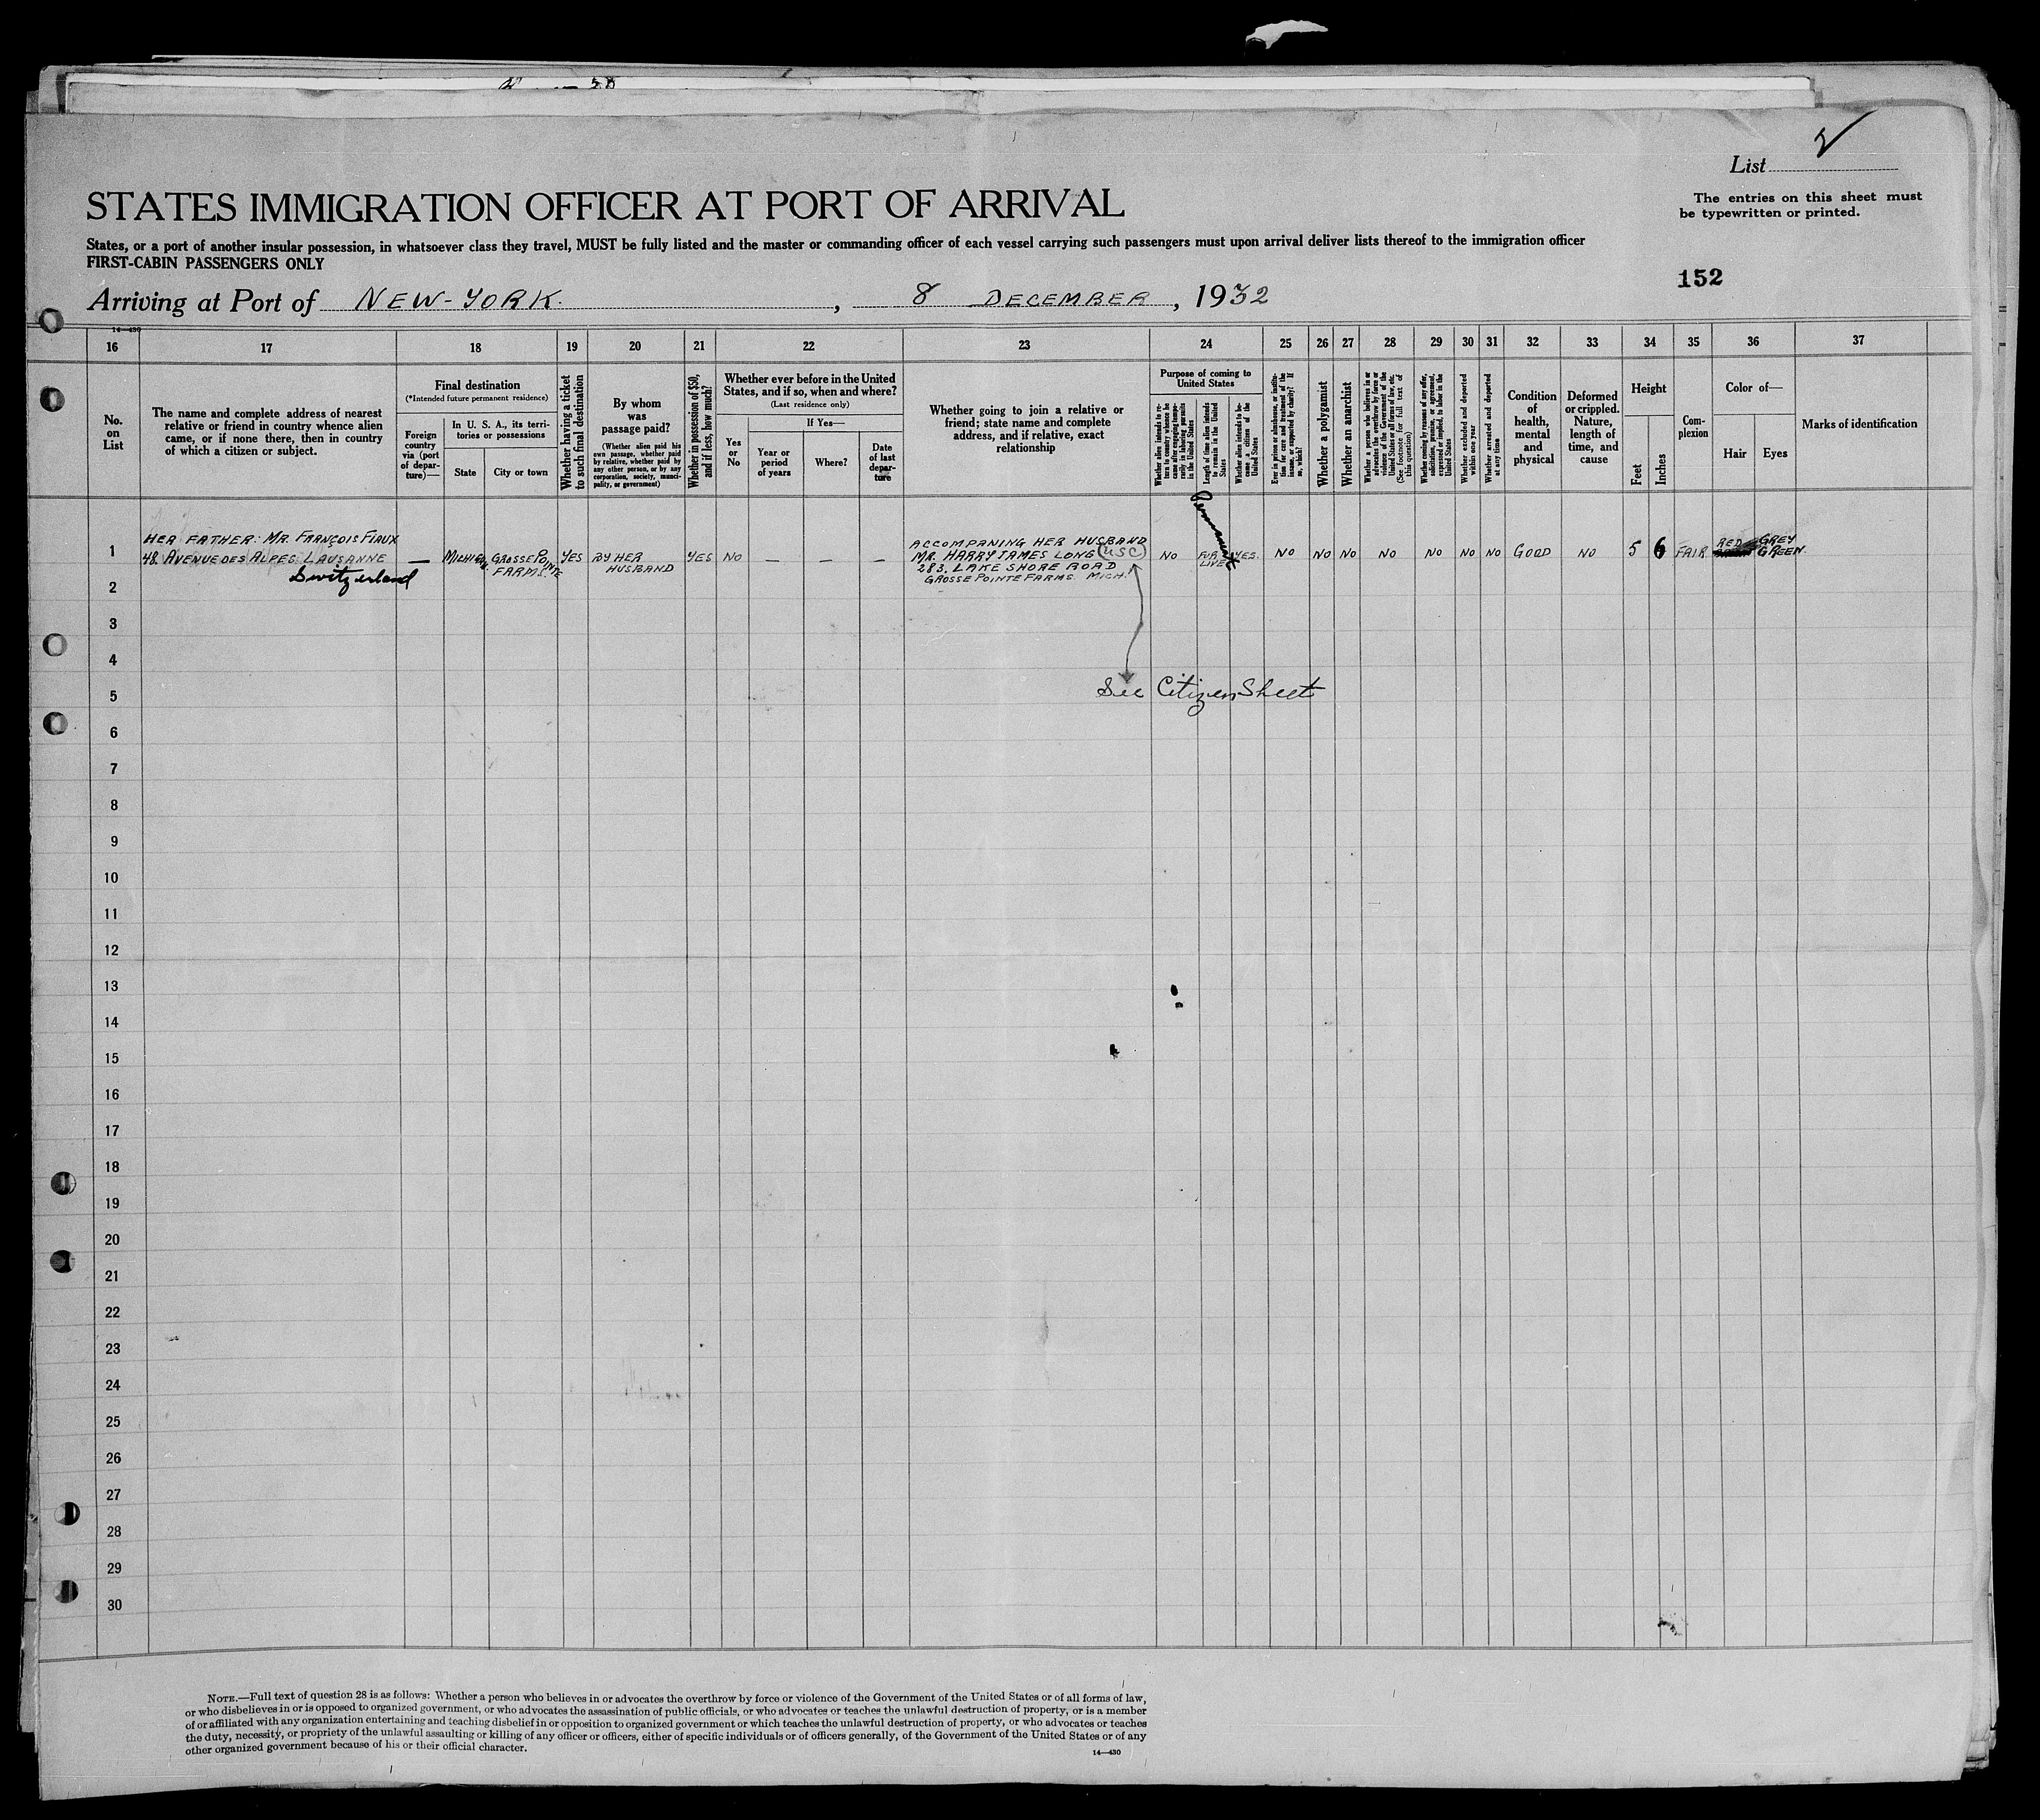 List 2
STATES IMMIGRATION OFFICER AT PORT OF ARRIVAL
The entries on this sheet must
be typewritten or printed.
States, or a port of another insular possession, in whatsoever class they travel, MUST be fully listed and the master or commanding officer of each vessel carrying such passengers must upon arrival deliver lists thereof to the immigration officer
FIRST-CABIN PASSENGERS ONLY
152
Arriving at Port of NEW-YORK. , 8 DECEMBER , 1932
14—430
16 17 18 19 20 21 22 23 24 25 26 27 28 29 30 31 32 33 34 35 36 37
No.
on
List
The name and complete address of nearest
relative or friend in country whence alien
came, or if none there, then in country
of which a citizen or subject.
Final destination
(*Intended future permanent residence)
Foreign
country
via (port
of depar-
ture)—
In U. S. A., its terri-
tories or possessions
State
City or town
Whether having a ticket
to such final destination
By whom
was
passage paid?
(Whether alien paid his
own passage, whether paid
by relative, whether paid by
any other person, or by any
corporation, society, munici-
pality, or government)
Whether in possession of $50,
and if less, how much?
Whether ever before in the United
States, and if so, when and where?
(Last residence only)
Yes
or
No
If Yes—
Year or
period
of years
Where?
Date
of last
depar-
ture
Whether going to join a relative or
friend; state name and complete
address, and if relative, exact
relationship
Purpose of coming to
United States
Whether alien intends to re-
turn to country whence he
came after engaging tempo-
rarily in laboring pursuits
in the United States
Length of time alien intends
to remain in the United
States
Whether alien intends to be-
come a citizen of the
United States
Ever in prison or almshouse, or institu-
tion for care and treatment of the
insane, or supported by charity? If
so, which?
Whether a polygamist
Whether an anarchist
Whether a person who believes in or
advocates the overthrow by force or
violence of the Government of the
United States or all forms of law, etc.
(See footnote for full text of
this question)
Whether coming by reasons of any offer,
solicitation, promise, or agreement,
expressed or implied, to labor in the
United States
Whether excluded and deported
within one year
Whether arrested and deported
at any time
Condition
of
health,
mental
and
physical
Deformed
or crippled.
Nature,
length of
time, and
cause
Height
Feet
Inches
Com-
plexion
Color of—
Hair
Eyes
Marks of identification
1
HER FATHER: MR. FRANÇOIS FIAUX
48. AVENUE DES ALPES. LAUSANNE
Switzerland
—
MICHIGAN.
GROSSE POINTE
FARMS.
YES
BY HER
HUSBAND
YES
NO
—
—
—
ACCOMPANING HER HUSBAND
MR. HARRY JAMES LONG USC
283. LAKE SHORE ROAD
GROSSE POINTE FARMS. MICH.
NO
Permanent
FOR
LIVE
YES.
NO
NO
NO
NO
NO
NO
NO
GOOD
NO
5
6
FAIR
RED
GREY
GREEN
See Citizen Sheet
2
3
4
5
6
7
8
9
10
11
12
13
14
15
16
17
18
19
20
21
22
23
24
25
26
27
28
29
30
NOTE.—Full text of question 28 is as follows: Whether a person who believes in or advocates the overthrow by force or violence of the Government of the United States or of all forms of law,
or who disbelieves in or is opposed to organized government, or who advocates the assassination of public officials, or who advocates or teaches the unlawful destruction of property, or is a member
of or affiliated with any organization entertaining and teaching disbelief in or opposition to organized government or which teaches the unlawful destruction of property, or who advocates or teaches
the duty, necessity, or propriety of the unlawful assaulting or killing of any officer or officers, either of specific individuals or of officers generally, of the Government of the United States or of any
other organized government because of his or their official character.
14—430